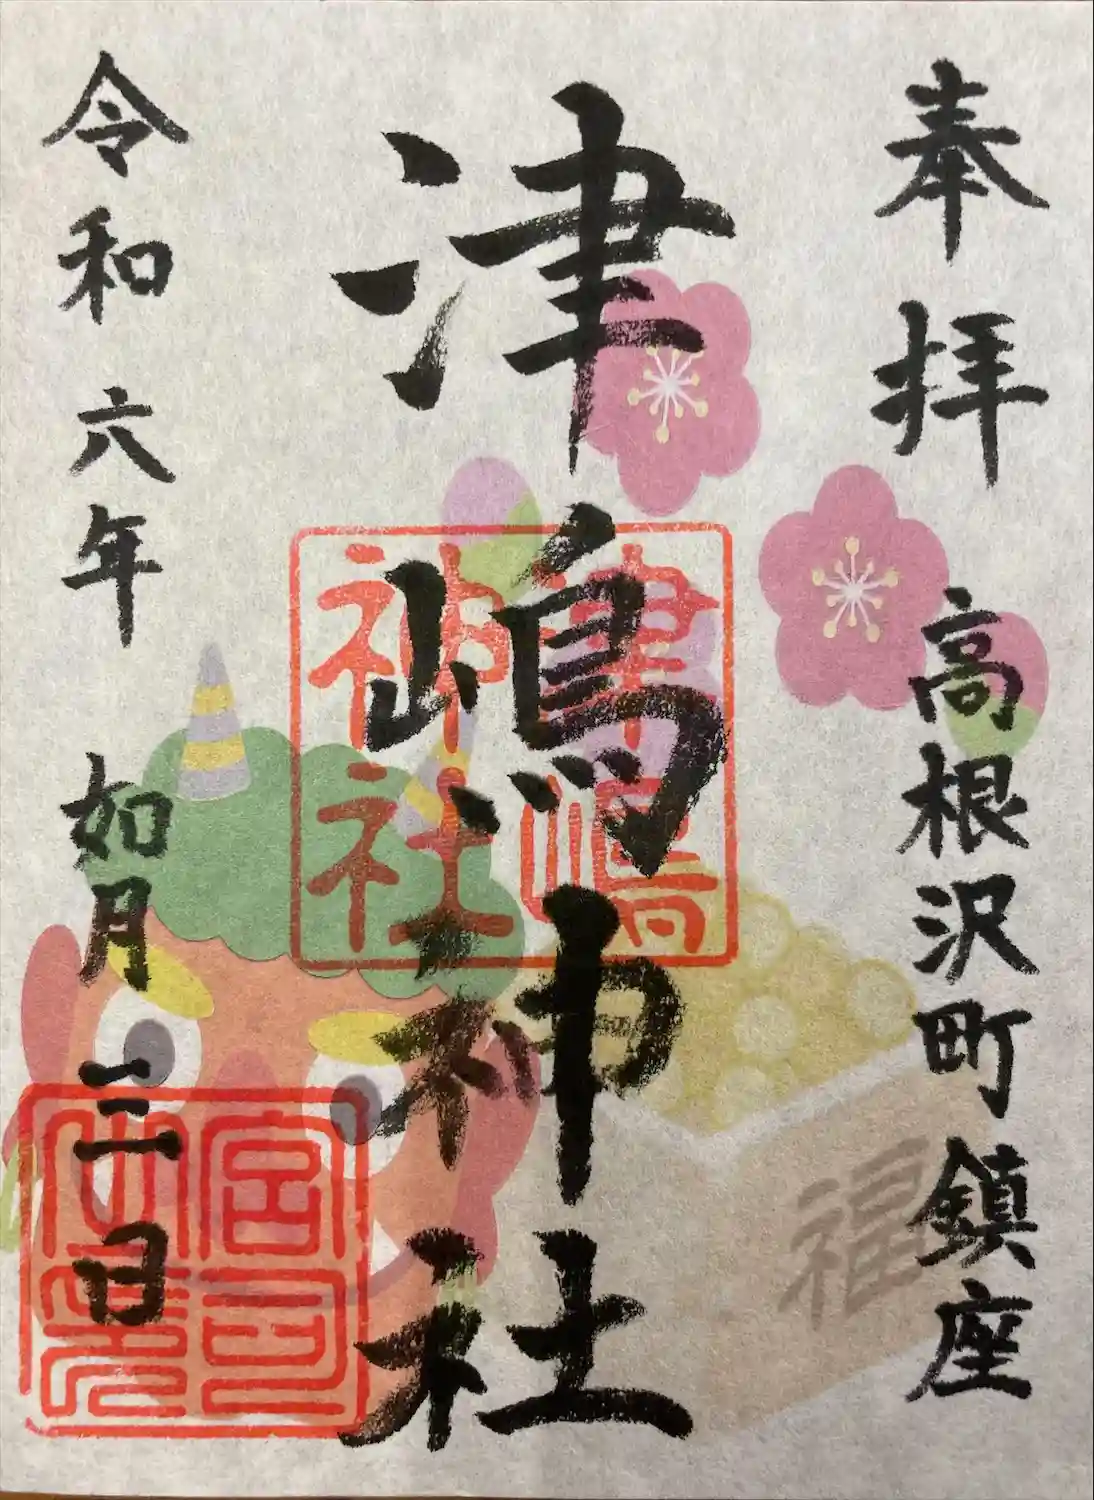 奉拝
高根沢町鎮座
津嶋神社
津嶋
神社
令和六年 如月 三日
宮司
福